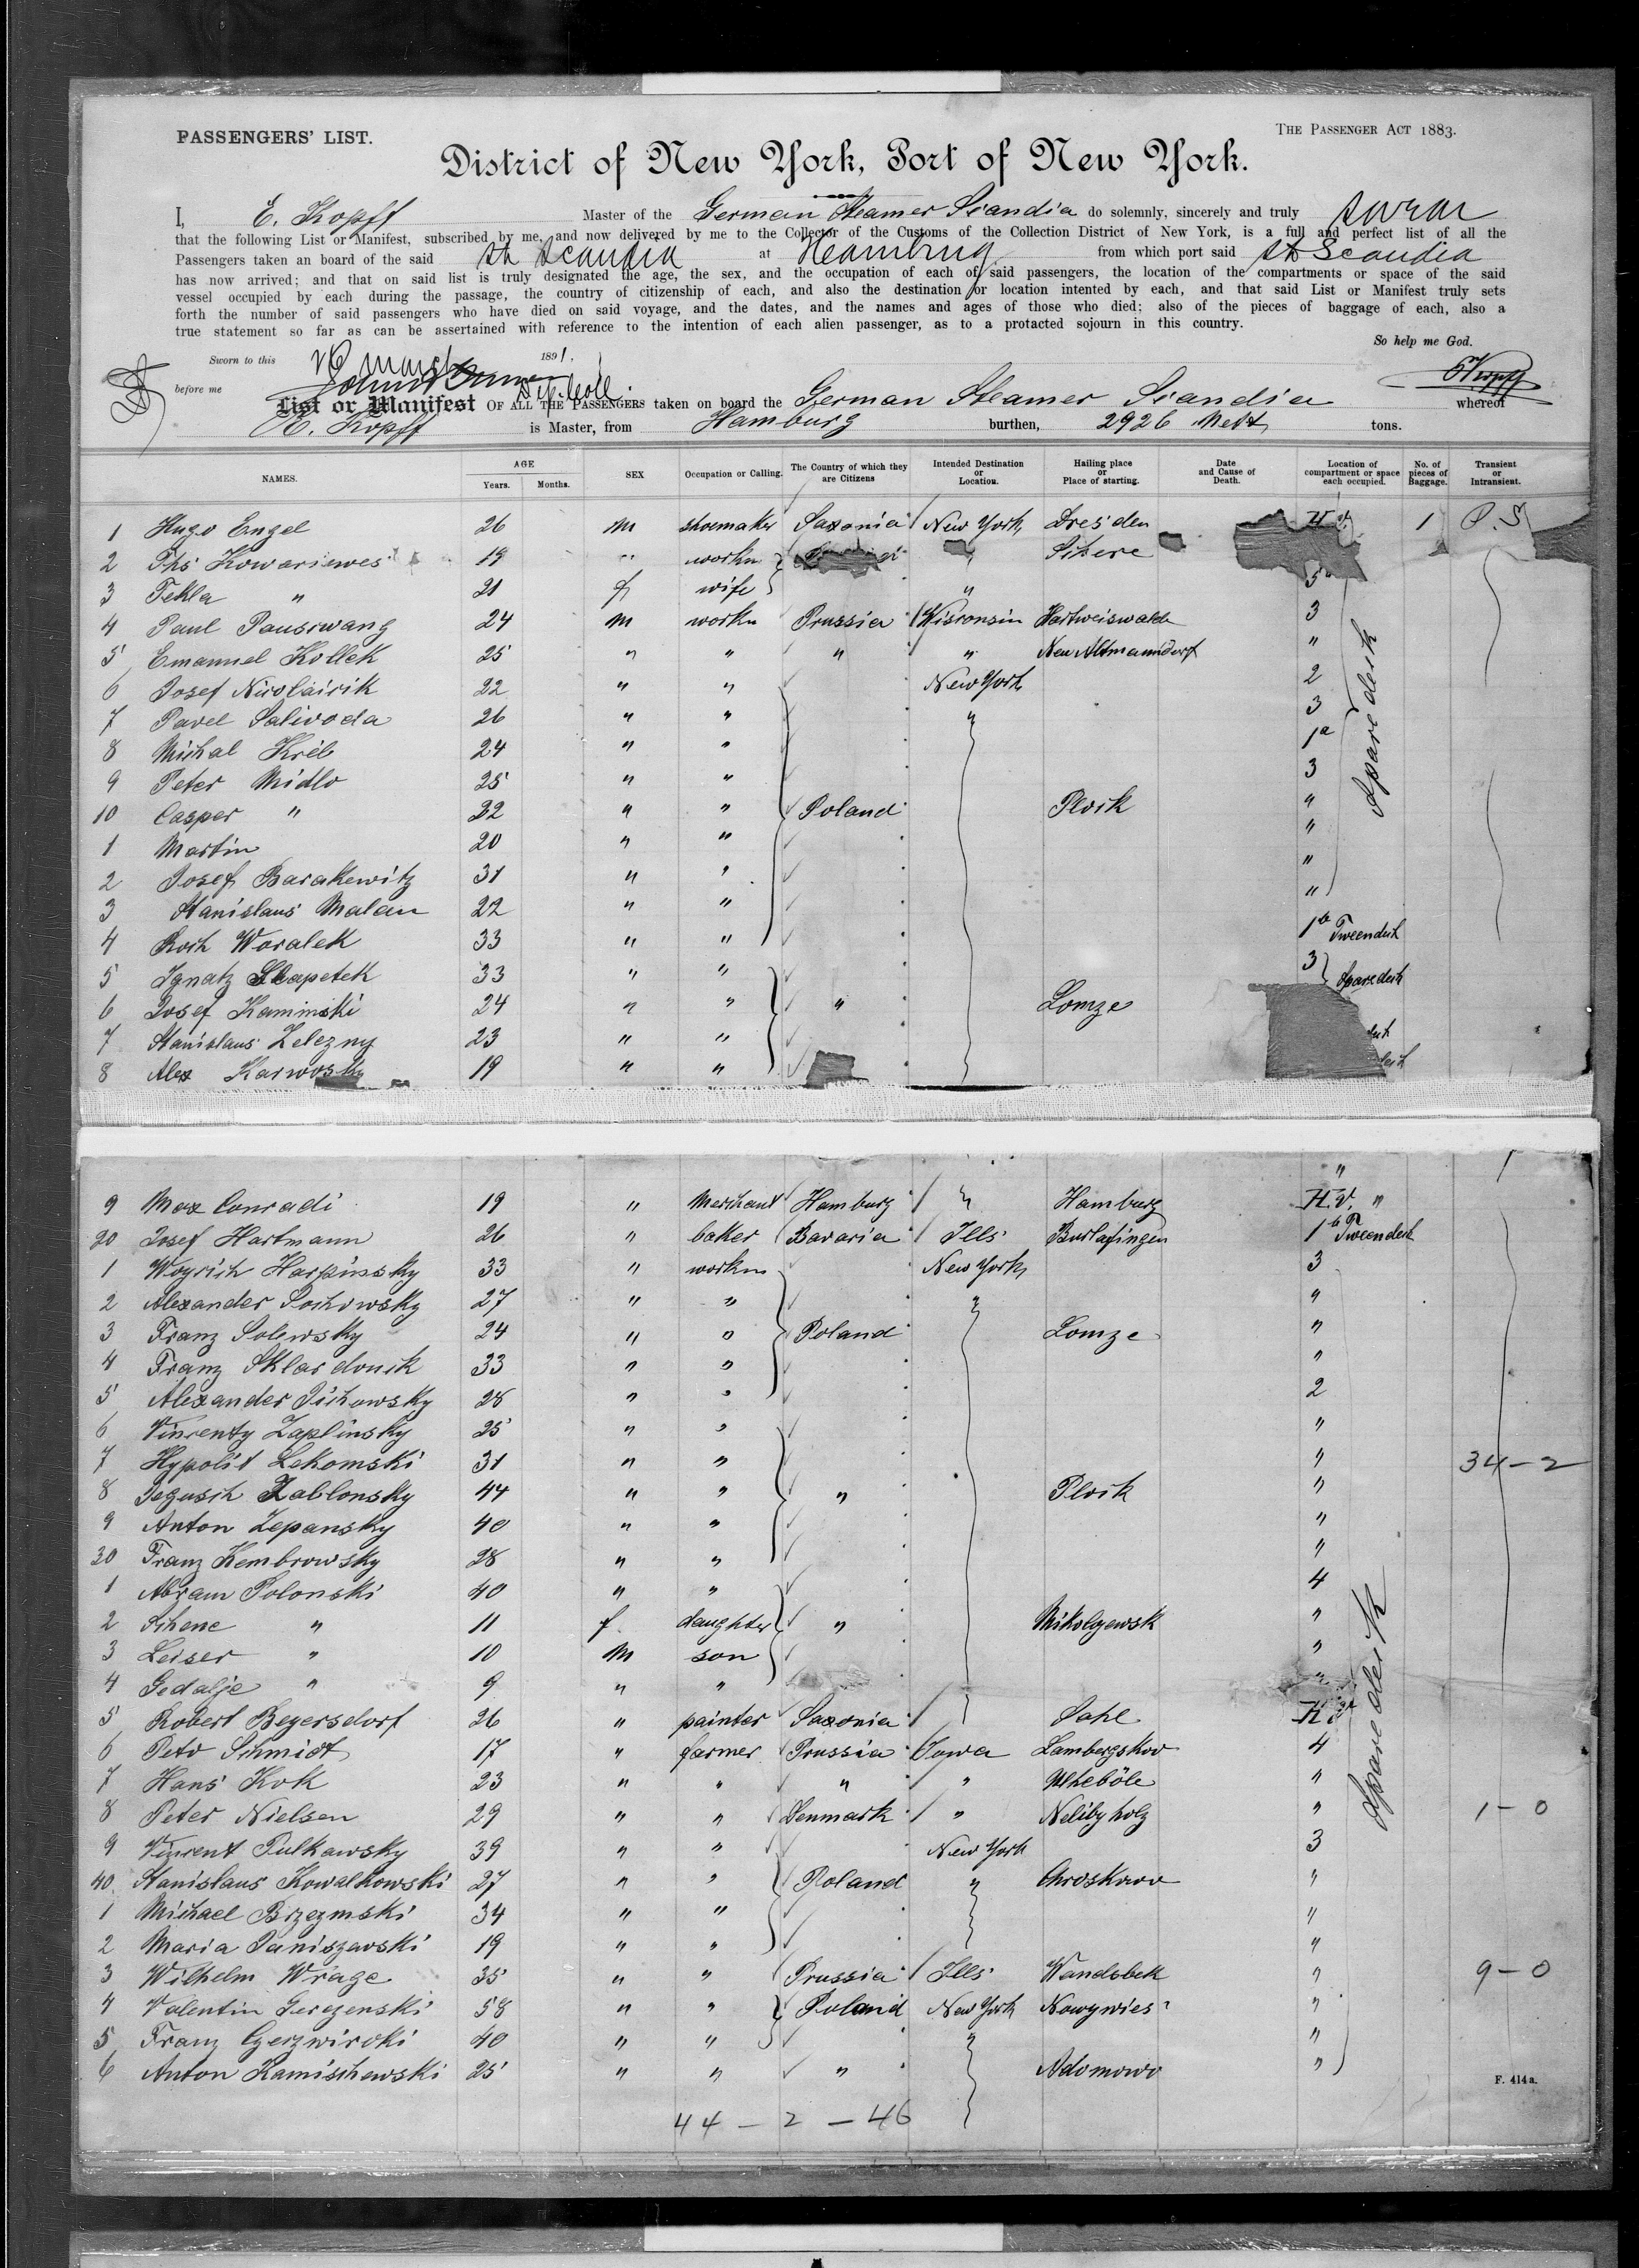 PASSENGERS' LIST.
THE PASSENGER ACT 1883.
District of New York, Port of New York.
I, E. Kopff Master of the German Steamer Scandia do solemnly, sincerely and truly swear
that the following List or Manifest, subscribed by me, and now delivered by me to the Collector of the Customs of the Collection District of New York, is a full and perfect list of all the
Passengers taken an board of the said Str Scandia at Hamburg from which port said Str Scandia
has now arrived; and that on said list is truly designated the age, the sex, and the occupation of each of said passengers, the location of the compartments or space of the said
vessel occupied by each during the passage, the country of citizenship of each, and also the destination or location intented by each, and that said List or Manifest truly sets
forth the number of said passengers who have died on said voyage, and the dates, and the names and ages of those who died; also of the pieces of baggage of each, also a
true statement so far as can be assertained with reference to the intention of each alien passenger, as to a protacted sojourn in this country.
So help me God.
Sworn to this 26 March 1891.
before me
List or Manifest OF ALL THE PASSENGERS taken on board the German Steamer Scandia whereof
E. Kopff is Master, from Hamburg burthen, 2926 Nett tons.
NAMES. AGE Years. Months. SEX Occupation or Calling. The Country of which they are Citizens Intended Destination or Location. Hailing place or Place of starting. Date and Cause of Death. Location of compartment or space each occupied. No. of pieces of Baggage. Transient or Intransient.
1 Hugo Engel 26 m shoemaker Saxonia New York Dresden 1 P.S
2 Ths Kowariewes 19 " workn " Sitere
3 Tekla " 21 f wife " 5
4 Paul Pauswang 24 m workn Prussia Wisconsin Hartweiswalde 3
5 Emanuel Kollek 25 " " " " Neu Altmannsdorf "
6 Josef Nicolaicik 22 " " New York 2
7 Pavel Salivoda 26 " " " 3
8 Michal Krel 24 " " 1a
9 Peter Midlo 25 " " 3
10 Casper " 22 " " Poland Plock "
1 Martin 20 " " "
2 Josef Barakewitz 31 " " "
3 Stanislaus Malan 22 " " "
4 Roch Woralek 33 " " 1b Tweendeck
5 Ignatz Slapetek 33 " " 3 Sparedeck
6 Josef Kaminski 24 " " " Lomze
7 Stanislaus Zelezny 23 " "
8 Alex Karwosky 19 " "
Sparedeck
"
9 Max Conradi 19 " Merchant Hamburg " Hamburg H.V. "
20 Josef Hartmann 26 " baker Bavaria Ills Burlafingen 1b Tweendeck
1 Woyrich Harpinsky 33 " workm New York 3
2 Alexander Sochowsky 27 " " " "
3 Franz Solewsky 24 " " Poland Lomze "
4 Franz Sklardonik 33 " " "
5 Alexander Pichowsky 28 " " 2
6 Vincenty Zaplinsky 25 " " "
7 Hypolit Lekomski 31 " " " 34-2
8 Jegusch Zablonsky 44 " " " Plock "
9 Anton Zepansky 40 " " "
30 Franz Kembrowsky 28 " " "
1 Abram Polonski 40 " " 4
2 Schene " 11 f daughter " Mikolyewsk "
3 Leiser " 10 m son "
4 Gedalje " 9 " " "
5 Robert Beyersdorf 26 " painter Saxonia Sahl
6 Peto Schmidt 17 " farmer Prussia Iowa Lambergskov 4
7 Hans Kok 23 " " " " Uhleböle "
8 Peter Nielsen 29 " " Denmark " Nelibyholz " 1-0
9 Vincent Pulkawsky 39 " " New York 3
40 Stanislaus Kowalkowski 27 " " Poland " Chroskowo "
1 Michael Brzezmski 34 " " "
2 Maria Janiszewski 19 " " "
3 Wilhelm Wrage 35 " " Prussia Ills Wandsbek " 9-0
4 Valentin Gerezenski 58 " " Poland New York Nowywies "
5 Franz Czerzwiroki 40 " " " "
6 Anton Kamischewski 25 " " " Adomowo "
Sparedeck
F. 414a.
44 - 2 - 46